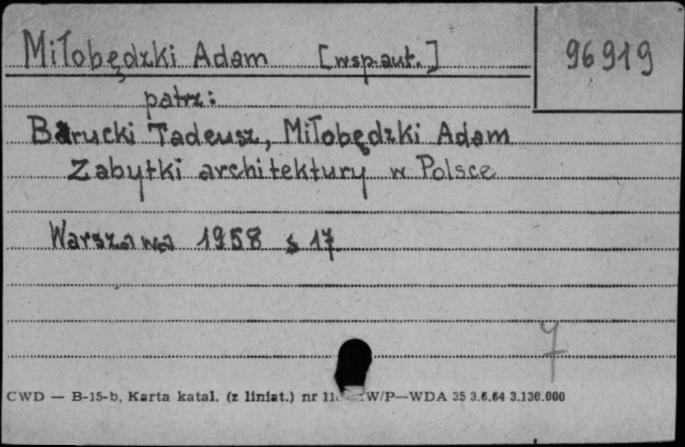 Miłobędzki Adam [wsp.aut.] 96919
patrz:
Barucki Tadeusz, Miłobędzki Adam
Zabytki architektury w Polsce
Warszawa 1958 s 17
7
CWD — B-15-b, Karta katal. (z liniat.) nr W/P—WDA 35 3.6.64 3.130.000